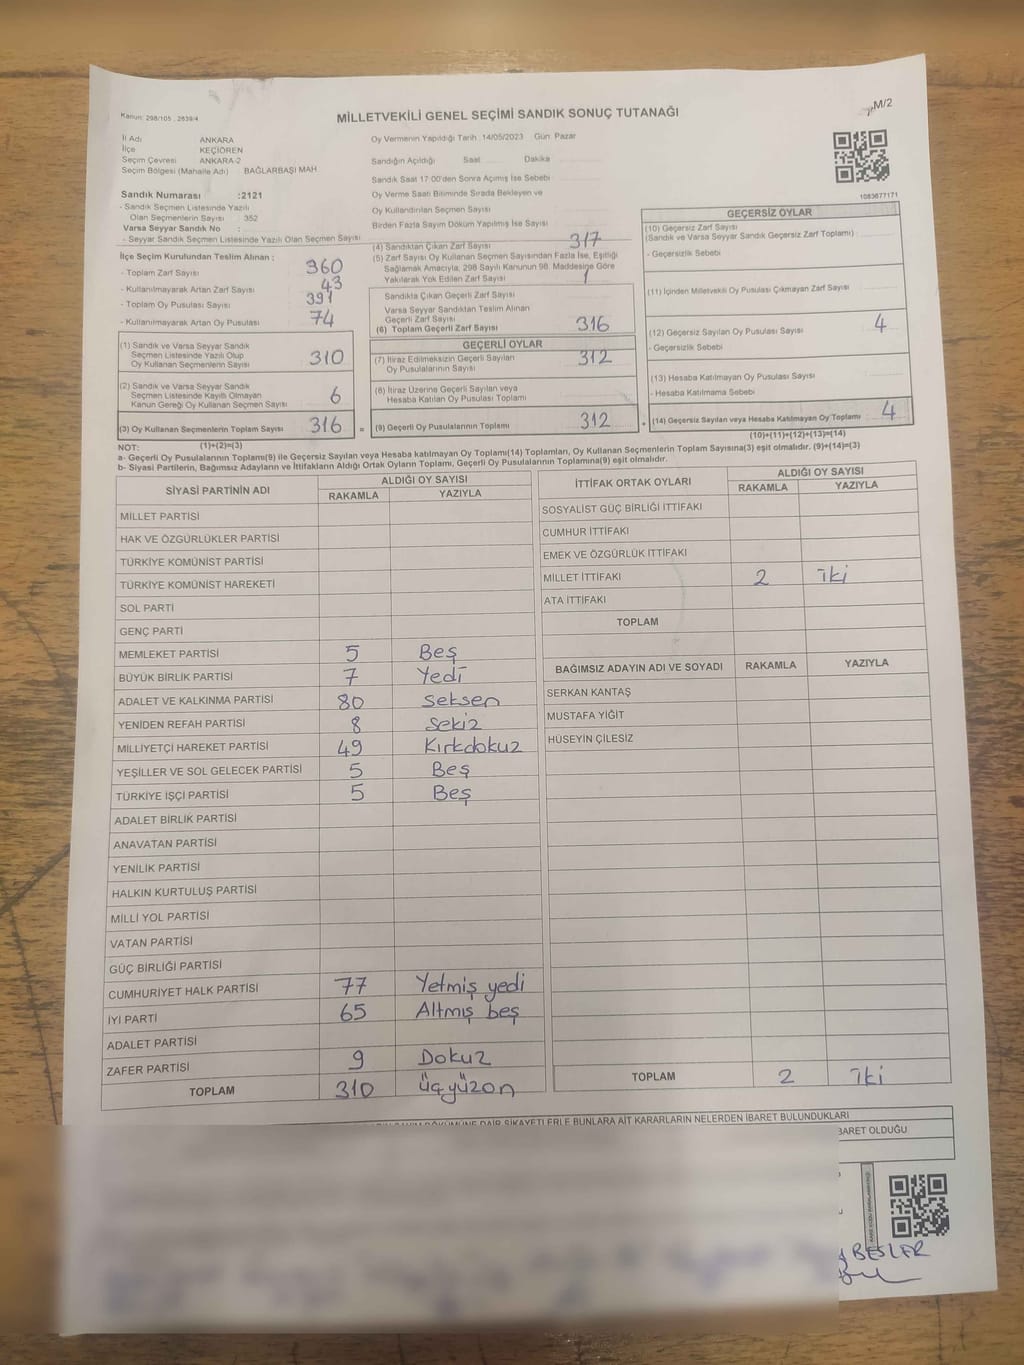 Kanun: 298/105, 2839/4
MİLLETVEKİLİ GENEL SEÇİMİ SANDIK SONUÇ TUTANAĞI
M/2
İl Adı ANKARA
İlçe KEÇİÖREN
Seçim Çevresi ANKARA-2
Seçim Bölgesi (Mahalle Adı) BAĞLARBAŞI MAH
Sandık Numarası :2121
- Sandık Seçmen Listesinde Yazılı
Olan Seçmenlerin Sayısı : 352
Varsa Seyyar Sandık No :
- Seyyar Sandık Seçmen Listesinde Yazılı Olan Seçmen Sayısı
Oy Vermenin Yapıldığı Tarih :14/05/2023 Gün: Pazar
Sandığın Açıldığı Saat Dakika
Sandık Saat 17:00'den Sonra Açımış İse Sebebi
Oy Verme Saati Bitiminde Sırada Bekleyen ve
Oy Kullandırılan Seçmen Sayısı
Birden Fazla Sayım Döküm Yapılmış İse Sayısı
1083677171
İlçe Seçim Kurulundan Teslim Alınan :
- Toplam Zarf Sayısı 360
- Kullanılmayarak Artan Zarf Sayısı 43
- Toplam Oy Pusulası Sayısı 391
- Kullanılmayarak Artan Oy Pusulası 74
(1) Sandık ve Varsa Seyyar Sandık
Seçmen Listesinde Yazılı Olup
Oy Kullanan Seçmenlerin Sayısı 310
(2) Sandık ve Varsa Seyyar Sandık
Seçmen Listesinde Kayıtlı Olmayan
Kanun Gereği Oy Kullanan Seçmen Sayısı 6
(3) Oy Kullanan Seçmenlerin Toplam Sayısı 316 =
(1)+(2)=(3)
(4) Sandıktan Çıkan Zarf Sayısı 317
(5) Zarf Sayısı Oy Kullanan Seçmen Sayısından Fazla İse, Eşitliği
Sağlamak Amacıyla, 298 Sayılı Kanunun 98. Maddesine Göre
Yakılarak Yok Edilen Zarf Sayısı 1
Sandıkta Çıkan Geçerli Zarf Sayısı
Varsa Seyyar Sandıktan Teslim Alınan
Geçerli Zarf Sayısı
(6) Toplam Geçerli Zarf Sayısı 316
GEÇERLİ OYLAR
(7) İtiraz Edilmeksizin Geçerli Sayılan
Oy Pusulalarının Sayısı 312
(8) İtiraz Üzerine Geçerli Sayılan veya
Hesaba Katılan Oy Pusulası Toplamı
(9) Geçerli Oy Pusulalarının Toplamı 312 +
GEÇERSİZ OYLAR
(10) Geçersiz Zarf Sayısı
(Sandık ve Varsa Seyyar Sandık Geçersiz Zarf Toplamı) :
- Geçersizlik Sebebi
(11) İçinden Milletvekili Oy Pusulası Çıkmayan Zarf Sayısı
(12) Geçersiz Sayılan Oy Pusulası Sayısı 4
- Geçersizlik Sebebi
(13) Hesaba Katılmayan Oy Pusulası Sayısı
- Hesaba Katılmama Sebebi
(14) Geçersiz Sayılan veya Hesaba Katılmayan Oy Toplamı 4
(10)+(11)+(12)+(13)=(14)
NOT:
a- Geçerli Oy Pusulalarının Toplamı(9) ile Geçersiz Sayılan veya Hesaba katılmayan Oy Toplamı(14) Toplamları, Oy Kullanan Seçmenlerin Toplam Sayısına(3) eşit olmalıdır. (9)+(14)=(3)
b- Siyasi Partilerin, Bağımsız Adayların ve İttifakların Aldığı Ortak Oyların Toplamı, Geçerli Oy Pusulalarının Toplamına(9) eşit olmalıdır.
SİYASİ PARTİNİN ADI ALDIĞI OY SAYISI
RAKAMLA YAZIYLA
MİLLET PARTİSİ
HAK VE ÖZGÜRLÜKLER PARTİSİ
TÜRKİYE KOMÜNİST PARTİSİ
TÜRKİYE KOMÜNİST HAREKETİ
SOL PARTİ
GENÇ PARTİ
MEMLEKET PARTİSİ 5 Beş
BÜYÜK BİRLİK PARTİSİ 7 Yedi
ADALET VE KALKINMA PARTİSİ 80 seksen
YENİDEN REFAH PARTİSİ 8 sekiz
MİLLİYETÇİ HAREKET PARTİSİ 49 Kırkdokuz
YEŞİLLER VE SOL GELECEK PARTİSİ 5 Beş
TÜRKİYE İŞÇİ PARTİSİ 5 Beş
ADALET BİRLİK PARTİSİ
ANAVATAN PARTİSİ
YENİLİK PARTİSİ
HALKIN KURTULUŞ PARTİSİ
MİLLİ YOL PARTİSİ
VATAN PARTİSİ
GÜÇ BİRLİĞİ PARTİSİ
CUMHURİYET HALK PARTİSİ 77 Yetmiş yedi
İYİ PARTİ 65 Altmış beş
ADALET PARTİSİ
ZAFER PARTİSİ 9 Dokuz
TOPLAM 310 üçyüzon
İTTİFAK ORTAK OYLARI ALDIĞI OY SAYISI
RAKAMLA YAZIYLA
SOSYALİST GÜÇ BİRLİĞİ İTTİFAKI
CUMHUR İTTİFAKI
EMEK VE ÖZGÜRLÜK İTTİFAKI
MİLLET İTTİFAKI 2 iki
ATA İTTİFAKI
TOPLAM
BAĞIMSIZ ADAYIN ADI VE SOYADI RAKAMLA YAZIYLA
SERKAN KANTAŞ
MUSTAFA YİĞİT
HÜSEYİN ÇİLESİZ
TOPLAM 2 iki
DÖKÜMÜNE DAİR ŞİKAYETLERLE BUNLARA AİT KARARLARIN NELERDEN İBARET BULUNDUKLARI
BARET OLDUĞU
BESLER